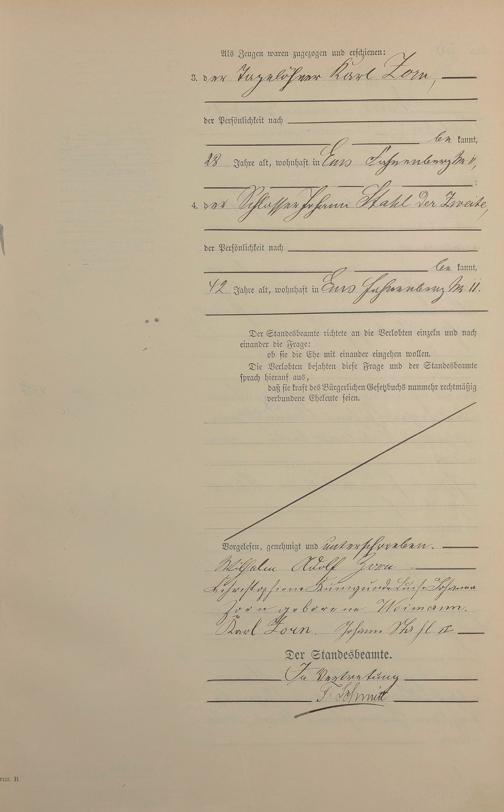 Als Zeugen waren zugezogen und erschienen:
3. der Tagelöhner Karl Zorn,
der Persönlichkeit nach
be kannt,
28 Jahre alt, wohnhaft in Ems Fahnenberg No 11,
4. der Schlosser Johann Stahl der Zweite,
der Persönlichkeit nach
be kannt,
42 Jahre alt, wohnhaft in Ems Fahnenberg No 11.
Der Standesbeamte richtete an die Verlobten einzeln und nach
einander die Frage:
ob sie die Ehe mit einander eingehen wollen.
Die Verlobten bejahten diese Frage und der Standesbeamte
sprach hierauf aus,
daß sie kraft des Bürgerlichen Gesetzbuchs nunmehr rechtmäßig
verbundene Eheleute seien.
Vorgelesen, genehmigt und unterschrieben.
Wilhelm Adolf Zorn
Kunigunde Luise Johanna
Zorn geborene
Karl Zorn. Johann Stahl
Der Standesbeamte.
In Vertretung
Schmitt
B.